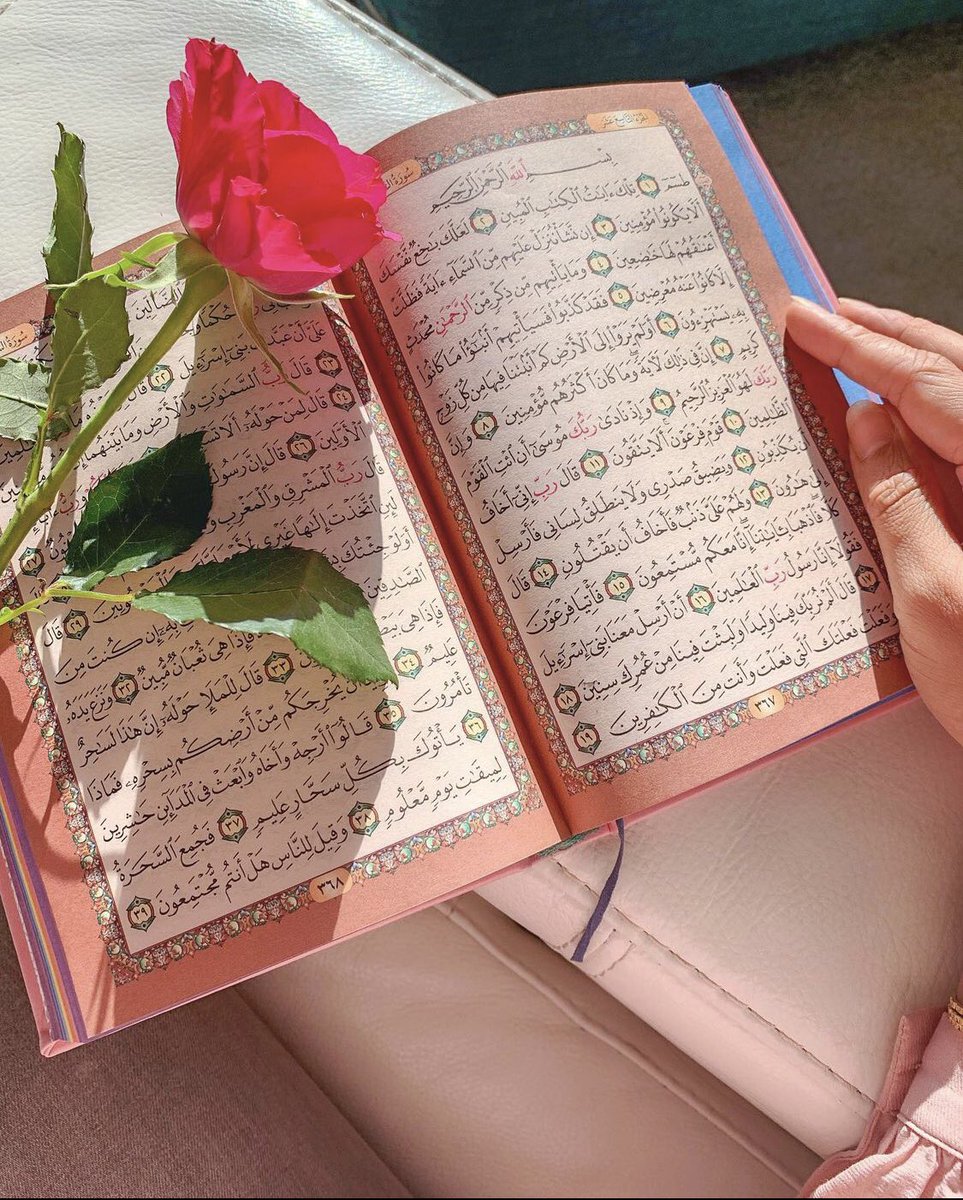 الجزء التاسع عشر
سُورَةُ
بِسْمِ اللَّهِ الرَّحْمَٰنِ الرَّحِيمِ
طسٓمٓ ١ تِلْكَ ءَايَٰتُ الْكِتَٰبِ الْمُبِينِ ٢ لَعَلَّكَ بَٰخِعٌ نَّفْسَكَ
أَلَّا يَكُونُوا۟ مُؤْمِنِينَ ٣ إِن نَّشَأْ نُنَزِّلْ عَلَيْهِم مِّنَ السَّمَآءِ ءَايَةً فَظَلَّتْ
أَعْنَٰقُهُمْ لَهَا خَٰضِعِينَ ٤ وَمَا يَأْتِيهِم مِّن ذِكْرٍ مِّنَ الرَّحْمَٰنِ مُحْدَثٍ
إِلَّا كَانُوا۟ عَنْهُ مُعْرِضِينَ ٥ فَقَدْ كَذَّبُوا۟ فَسَيَأْتِيهِمْ أَنۢبَٰٓؤُا۟ مَا كَانُوا۟
بِهِۦ يَسْتَهْزِءُونَ ٦ أَوَلَمْ يَرَوْا۟ إِلَى الْأَرْضِ كَمْ أَنۢبَتْنَا فِيهَا مِن كُلِّ زَوْجٍ
كَرِيمٍ ٧ إِنَّ فِى ذَٰلِكَ لَءَايَةً وَمَا كَانَ أَكْثَرُهُم مُّؤْمِنِينَ ٨ وَإِنَّ
رَبَّكَ لَهُوَ الْعَزِيزُ الرَّحِيمُ ٩ وَإِذْ نَادَىٰ رَبُّكَ مُوسَىٰٓ أَنِ ائْتِ الْقَوْمَ
الظَّٰلِمِينَ ١٠ قَوْمَ فِرْعَوْنَ أَلَا يَتَّقُونَ ١١ قَالَ رَبِّ إِنِّىٓ أَخَافُ
أَن يُكَذِّبُونِ ١٢ وَيَضِيقُ صَدْرِى وَلَا يَنطَلِقُ لِسَانِى فَأَرْسِلْ
هَٰرُونَ ١٣ وَلَهُمْ عَلَىَّ ذَنۢبٌ فَأَخَافُ أَن يَقْتُلُونِ ١٤ قَالَ
كَلَّا فَاذْهَبَا بِـَٔايَٰتِنَآ إِنَّا مَعَكُم مُّسْتَمِعُونَ ١٥ فَأْتِيَا فِرْعَوْنَ
فَقُولَآ إِنَّا رَسُولُ رَبِّ الْعَٰلَمِينَ ١٦ أَنْ أَرْسِلْ مَعَنَا بَنِىٓ إِسْرَٰٓءِيلَ
١٧ قَالَ أَلَمْ نُرَبِّكَ فِينَا وَلِيدًا وَلَبِثْتَ فِينَا مِنْ عُمُرِكَ سِنِينَ
١٨ وَفَعَلْتَ فَعْلَتَكَ الَّتِى فَعَلْتَ وَأَنتَ مِنَ الْكَٰفِرِينَ ١٩
٣٦٧
سُورَةُ
الضَّآلِّينَ
عَلَىَّ أَنْ عَبَّدتَّ بَنِىٓ إِسْرَٰٓءِيلَ ٢٢
٢٣ قَالَ رَبُّ السَّمَٰوَٰتِ وَالْأَرْضِ وَمَا بَيْنَهُمَآ
٢٤ قَالَ لِمَنْ حَوْلَهُۥٓ أَلَا
الْأَوَّلِينَ ٢٦ قَالَ إِنَّ رَسُولَ
قَالَ رَبُّ الْمَشْرِقِ وَالْمَغْرِبِ
لَئِنِ اتَّخَذْتَ إِلَٰهًا غَيْرِى
أَوَلَوْ جِئْتُكَ
الصَّٰدِقِينَ
٢٩ قَالَ
إِن كُنتَ مِنَ
فَإِذَا هِىَ ثُعْبَانٌ مُّبِينٌ ٣٢ وَنَزَعَ يَدَهُۥ
فَإِذَا هِىَ ٣٣ قَالَ لِلْمَلَإِ حَوْلَهُۥٓ إِنَّ هَٰذَا لَسَٰحِرٌ
عَلِيمٌ ٣٤ يُخْرِجَكُم مِّنْ أَرْضِكُم بِسِحْرِهِۦ فَمَاذَا
تَأْمُرُونَ ٣٥ قَالُوٓا۟ أَرْجِهْ وَأَخَاهُ وَابْعَثْ فِى الْمَدَآئِنِ حَٰشِرِينَ
٣٦ يَأْتُوكَ بِكُلِّ سَحَّارٍ عَلِيمٍ ٣٧ فَجُمِعَ السَّحَرَةُ
لِمِيقَٰتِ يَوْمٍ مَّعْلُومٍ ٣٨ وَقِيلَ لِلنَّاسِ هَلْ أَنتُم مُّجْتَمِعُونَ ٣٩
٣٦٨